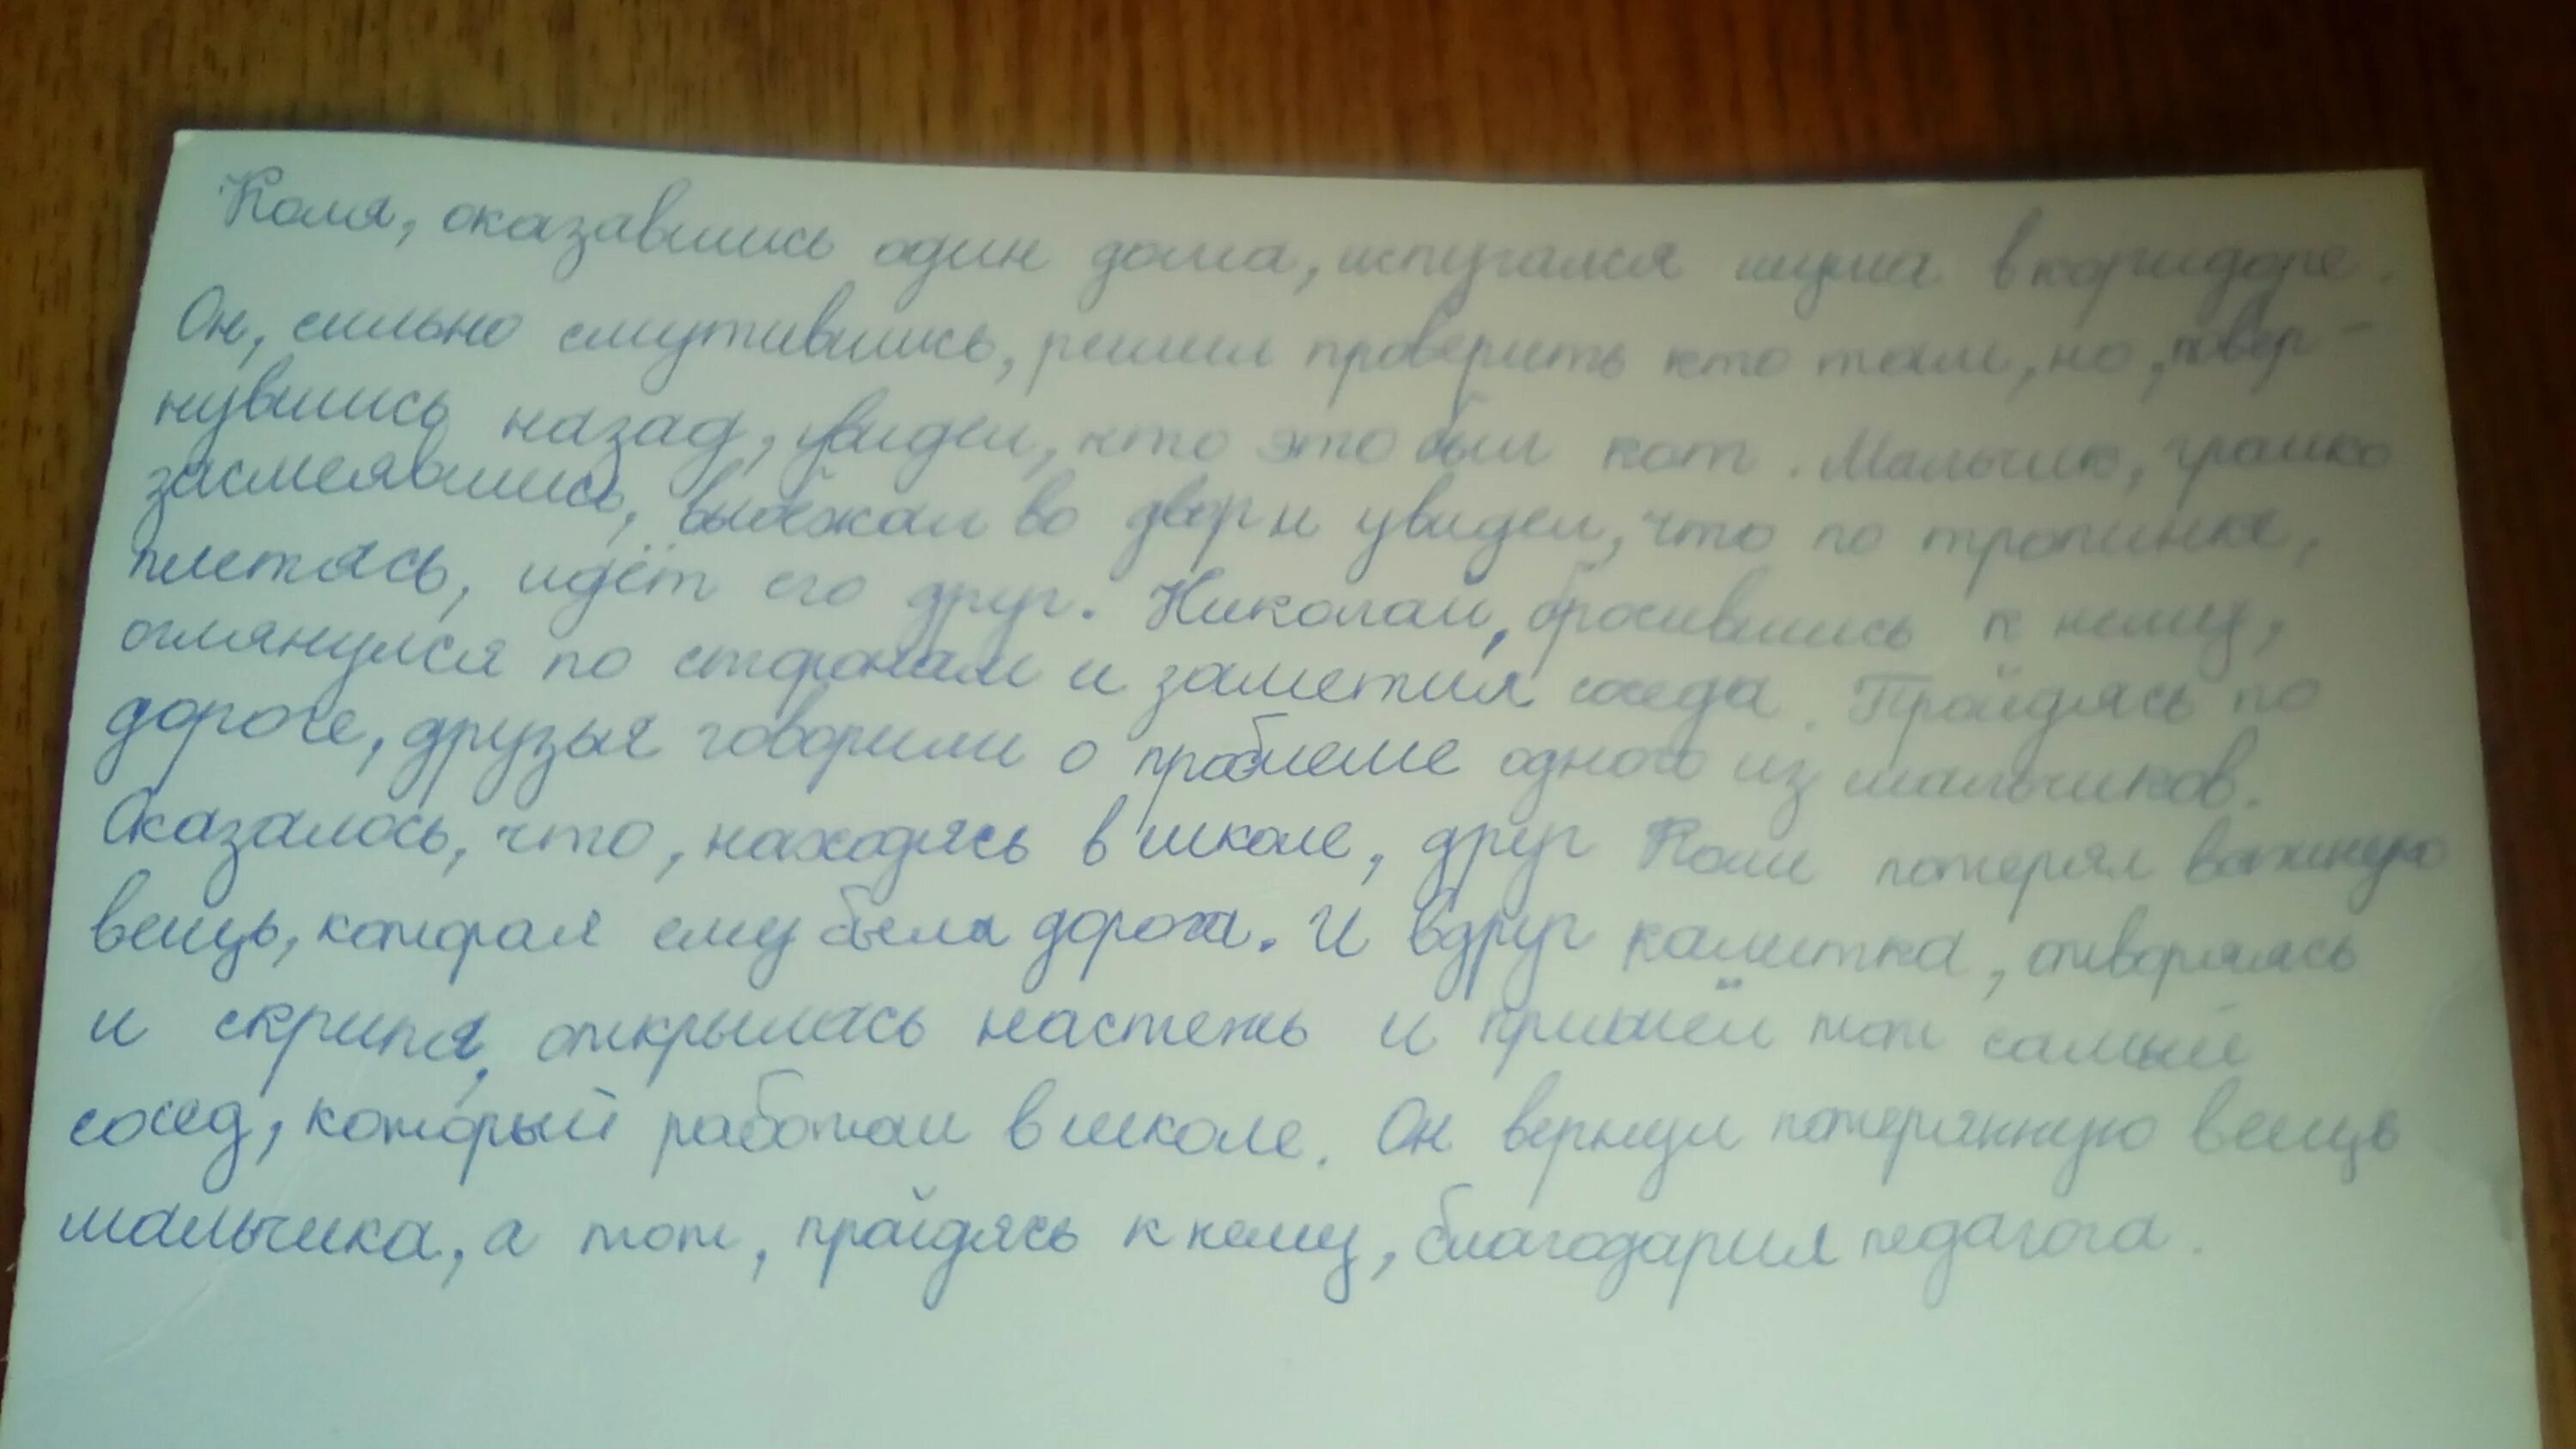 Коля, оказавшись один дома, испугался шума в коридоре.
Он, сильно смутившись, решил проверить кто там, но, повер-
нувшись назад, увидел, кто это был кот. Мальчик, громко
засмеявшись, выбежал во двор и увидел, что по тропинке,
плетясь, идёт его друг. Николай, бросившись к нему,
оглянулся по сторонам и заметил соседа. Пройдясь по
дороге, друзья говорили о проблеме одного из мальчиков.
Оказалось, что, находясь в школе, друг Коли потерял важную
вещь, которая ему была дорога. И вдруг калитка, отворяясь
и скрипя, открылась настежь и пришёл тот самый
сосед, который работал в школе. Он вернул потерянную вещь
мальчика, а тот, пройдясь к нему, благодарил педагога.